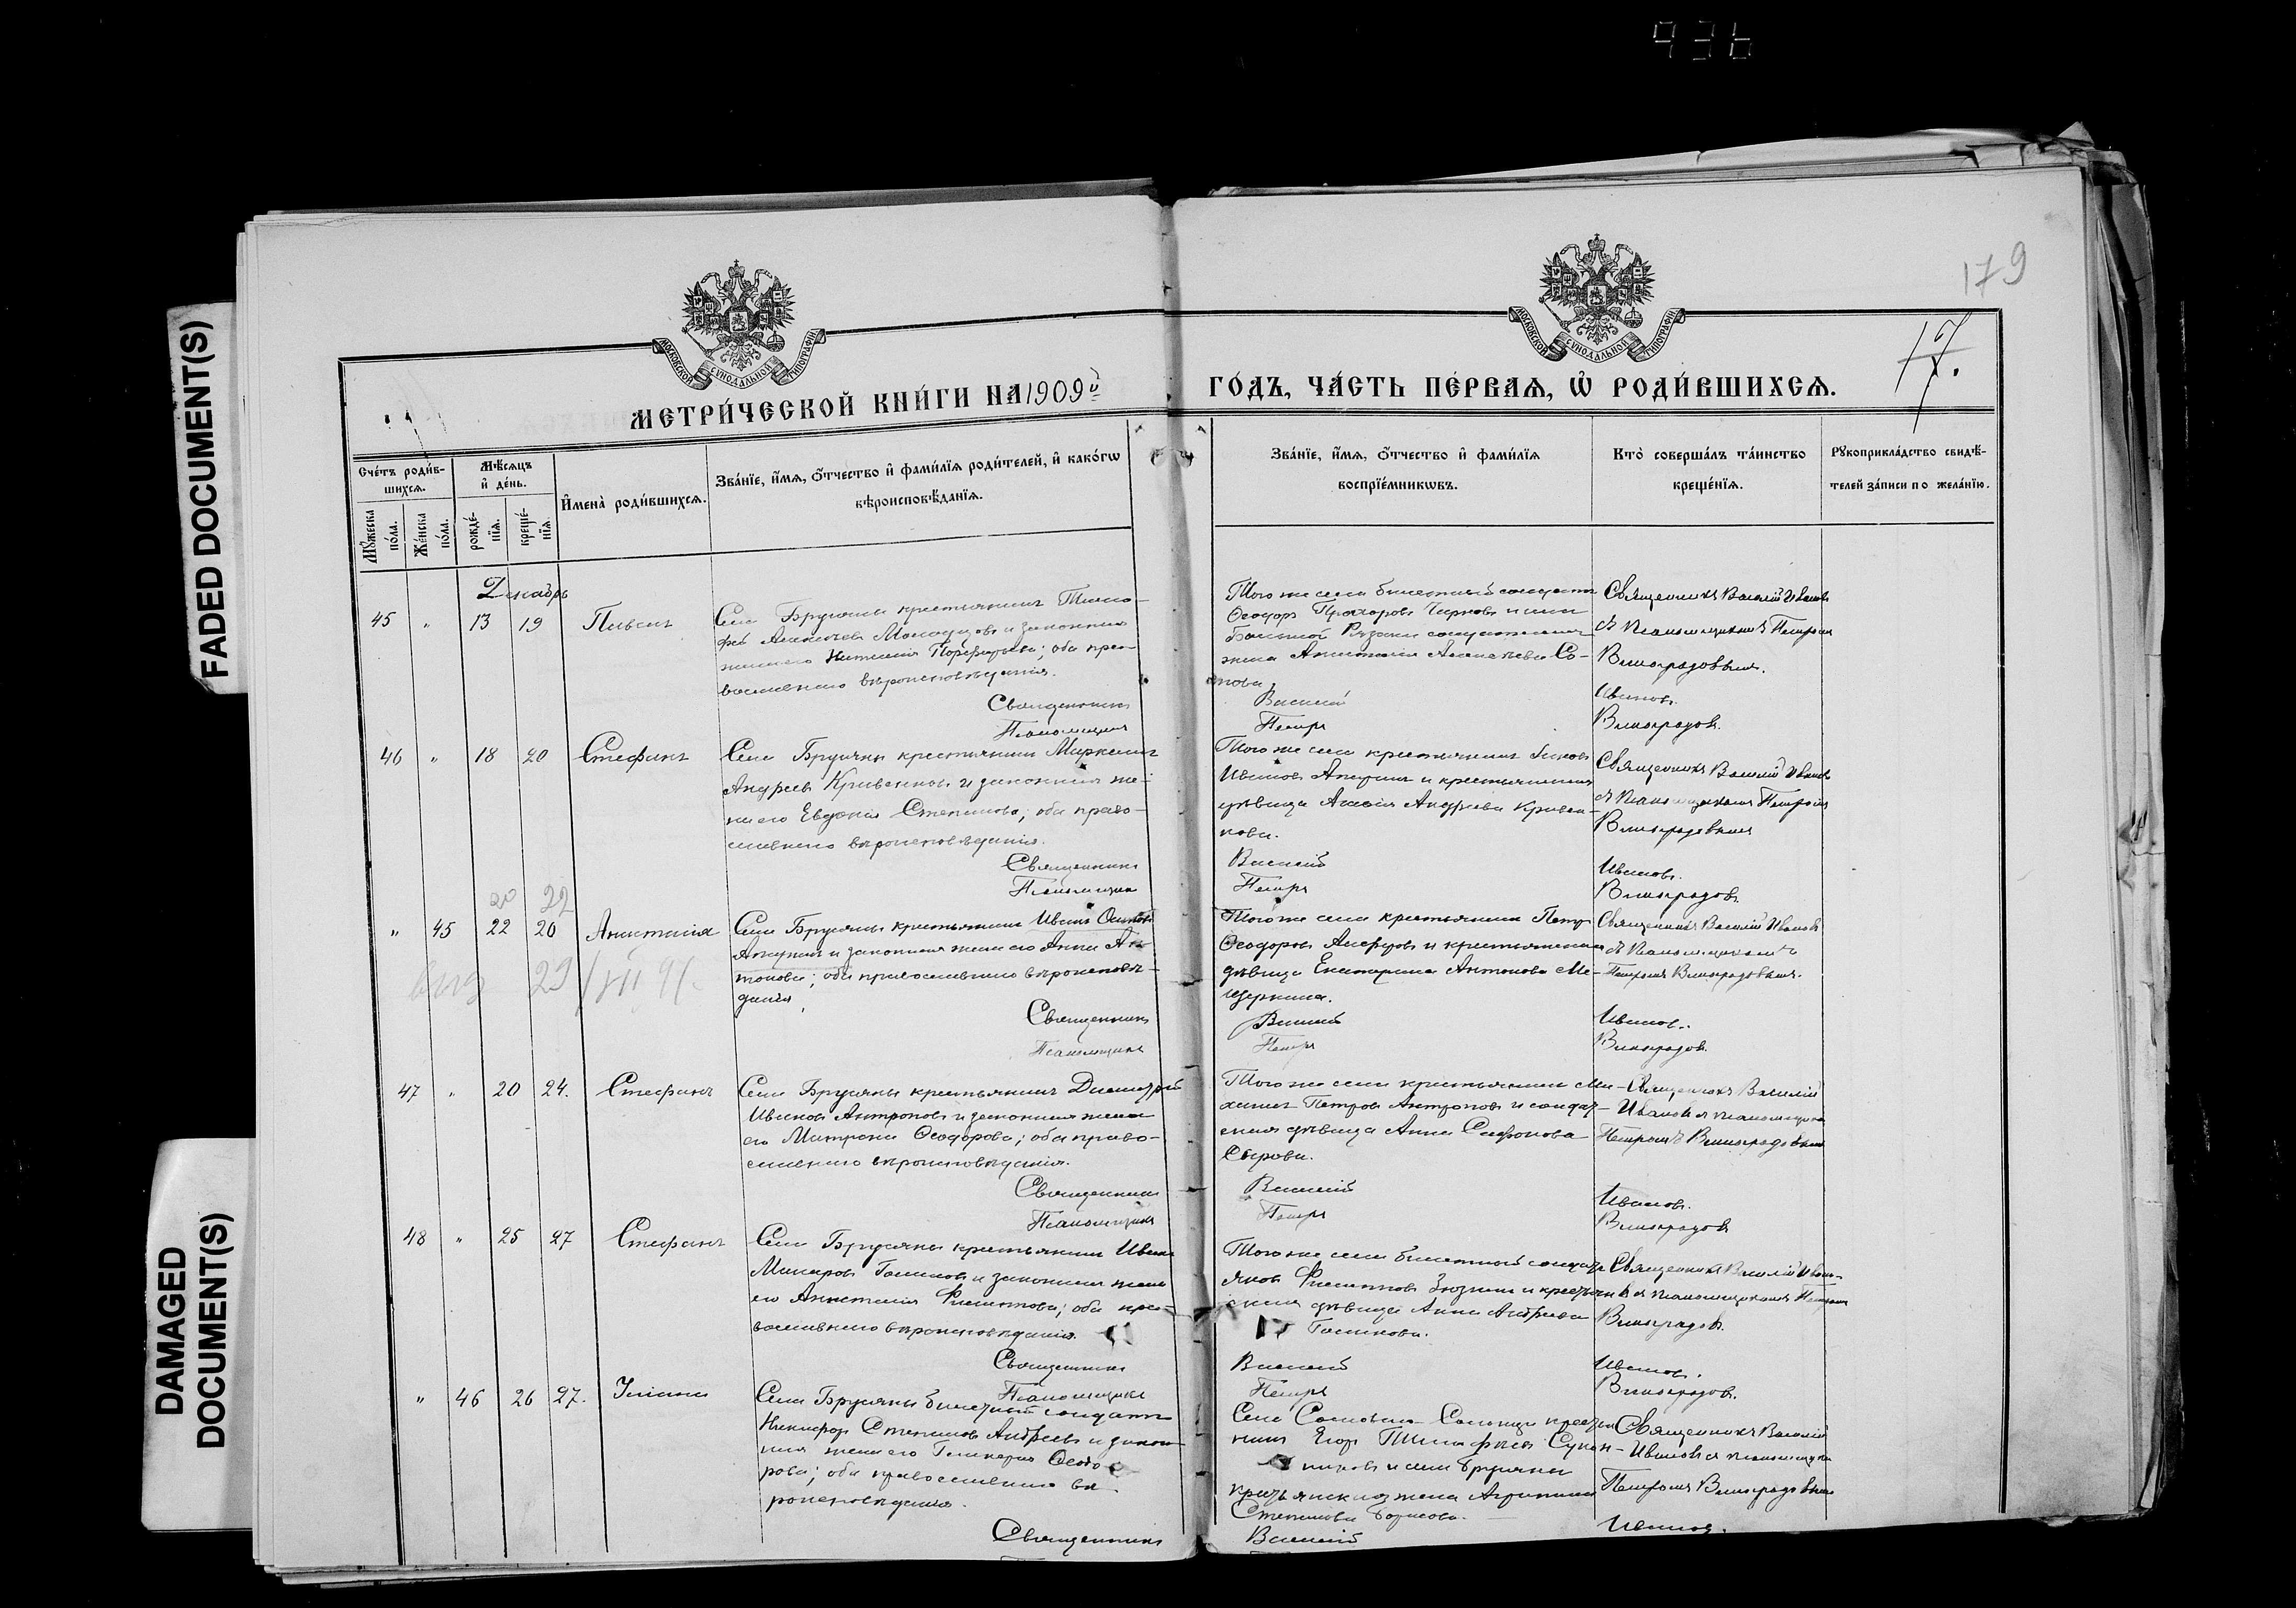 936
FADED DOCUMENT(S)
DAMAGED
DOCUMENT(S)
179
17.
МОСКОВСКОЙ СУНОДАЛЬНОЙ ТИПОГРАФІИ
МОСКОВСКОЙ СУНОДАЛЬНОЙ ТИПОГРАФІИ
МЕТРИ́ЧЕСКОЙ КНИ́ГИ НА 1909й
ГО́ДЪ, ЧА́СТЬ ПЕ́РВАЯ, Ѡ҆ РОДИ́ВШИХСЯ.
Сче́тъ роди́в-
шихся.
Му́жеска
по́ла.
Же́нска
по́ла.
Мѣ́сяцъ
и҆ де́нь.
рожде́-
нїя.
креще́-
нїя.
И҆мена̀ роди́вшихся.
Зва́нїе, и҆́мя, ѻ҆́тчество и҆ фами́лїя роди́телей, и҆ како́гѡ
вѣроисповѣ́данїя.
Зва́нїе, и҆́мя, ѻ҆́тчество и҆ фами́лїя
воспрїе́мникѡвъ.
Кто̀ соверша́лъ та́инство
креще́нїя.
Рꙋкоприкла́дство свидѣ́-
телей за́писи по жела́нїю.
Декабрь
45 " 13 19 Павелъ
Села Брусяны крестьянинъ Тимо-
фей и законная
жена его Наталія Порфирьева; оба пра-
вославнаго вѣроисповѣданія.
Священникъ
Псаломщикъ
Того же села билетный солдатъ
Ѳеодоръ Прохоровъ Чирковъ и села
Большой Рязани солдатская
жена Анастасія Со-
нова
Василій
Петръ
Священникъ Василій Ивановъ
съ псаломщикомъ Петромъ
Виноградовымъ.
Ивановъ.
Виноградовъ.
46 " 18 20 Стефанъ
Села Брусяны крестьянинъ Маркелъ
Андреевъ Кривенковъ и законная же-
на его Евдокія Степанова; оба право-
славнаго вѣроисповѣданія.
Священникъ
Псаломщикъ
Того же села крестьянинъ Іаковъ
Ивановъ Апкунъ и крестьянская
дѣвица Андреева Кривен-
кова.
Василій
Петръ
Священникъ Василій Ивановъ
съ псаломщикомъ Петромъ
Виноградовымъ
Ивановъ.
Виноградовъ
20 22
" 45 22 20 Анастасія
Села Брусяны крестьянинъ Иванъ Осиповъ
и законная жена его Анна Ан-
тонова; оба православнаго вѣроисповѣ-
данія.
Священникъ
Псаломщикъ
Того же села крестьянинъ Петръ
Ѳеодоровъ и крестьянская
дѣвица Екатерина Антонова Ме-
щеркина.
Василій
Петръ
Священникъ Василій Ивановъ
съ псаломщикомъ
Петромъ Виноградовымъ.
Ивановъ.
Виноградовъ.
47 " 20 24. Стефанъ
Села Брусяны крестьянинъ Димитрій
Ивановъ Антроповъ и законная жена
его Матрона Ѳеодорова; оба право-
славнаго вѣроисповѣданія.
Священникъ
Псаломщикъ
Того же села крестьянинъ Ми-
хаилъ Петровъ Антроповъ и солдат-
ская дѣвица Анна Сафонова
Сырова.
Василій
Петръ
Священникъ Василій
Ивановъ съ псаломщикомъ
Петромъ Виноградовымъ
Ивановъ.
Виноградовъ
48 " 25 27 Стефанъ
Села Брусяны крестьянинъ Иванъ
Макаровъ и законная жена
его Анастасія Филиппова; оба пра-
вославнаго вѣроисповѣданія.
Священникъ
Псаломщикъ
Того же села билетный солдатъ
Яковъ Филипповъ Зюзинъ и крестьян-
ская дѣвица Анна Андреева
Василій
Петръ
Священникъ Василій Ивано-
въ съ псаломщикомъ Петромъ
Виноградов.
Ивановъ.
Виноградовъ.
" 46 26 27. Уліана
Села Брусяны билетный солдатъ
Никифоръ Степановъ Андреевъ и закон-
ная жена его Гликерія Ѳеодо-
рова; оба православнаго вѣ-
роисповѣданія.
Священникъ
Села Сосноваго Солонца крестья-
нинъ Егоръ Сукон-
никовъ и села Брусяны
крестьянская жена Агрипина
Степанова Борисова.
Василій
Священникъ Василій
Ивановъ съ псаломщикомъ
Петромъ Виноградовымъ
Ивановъ.